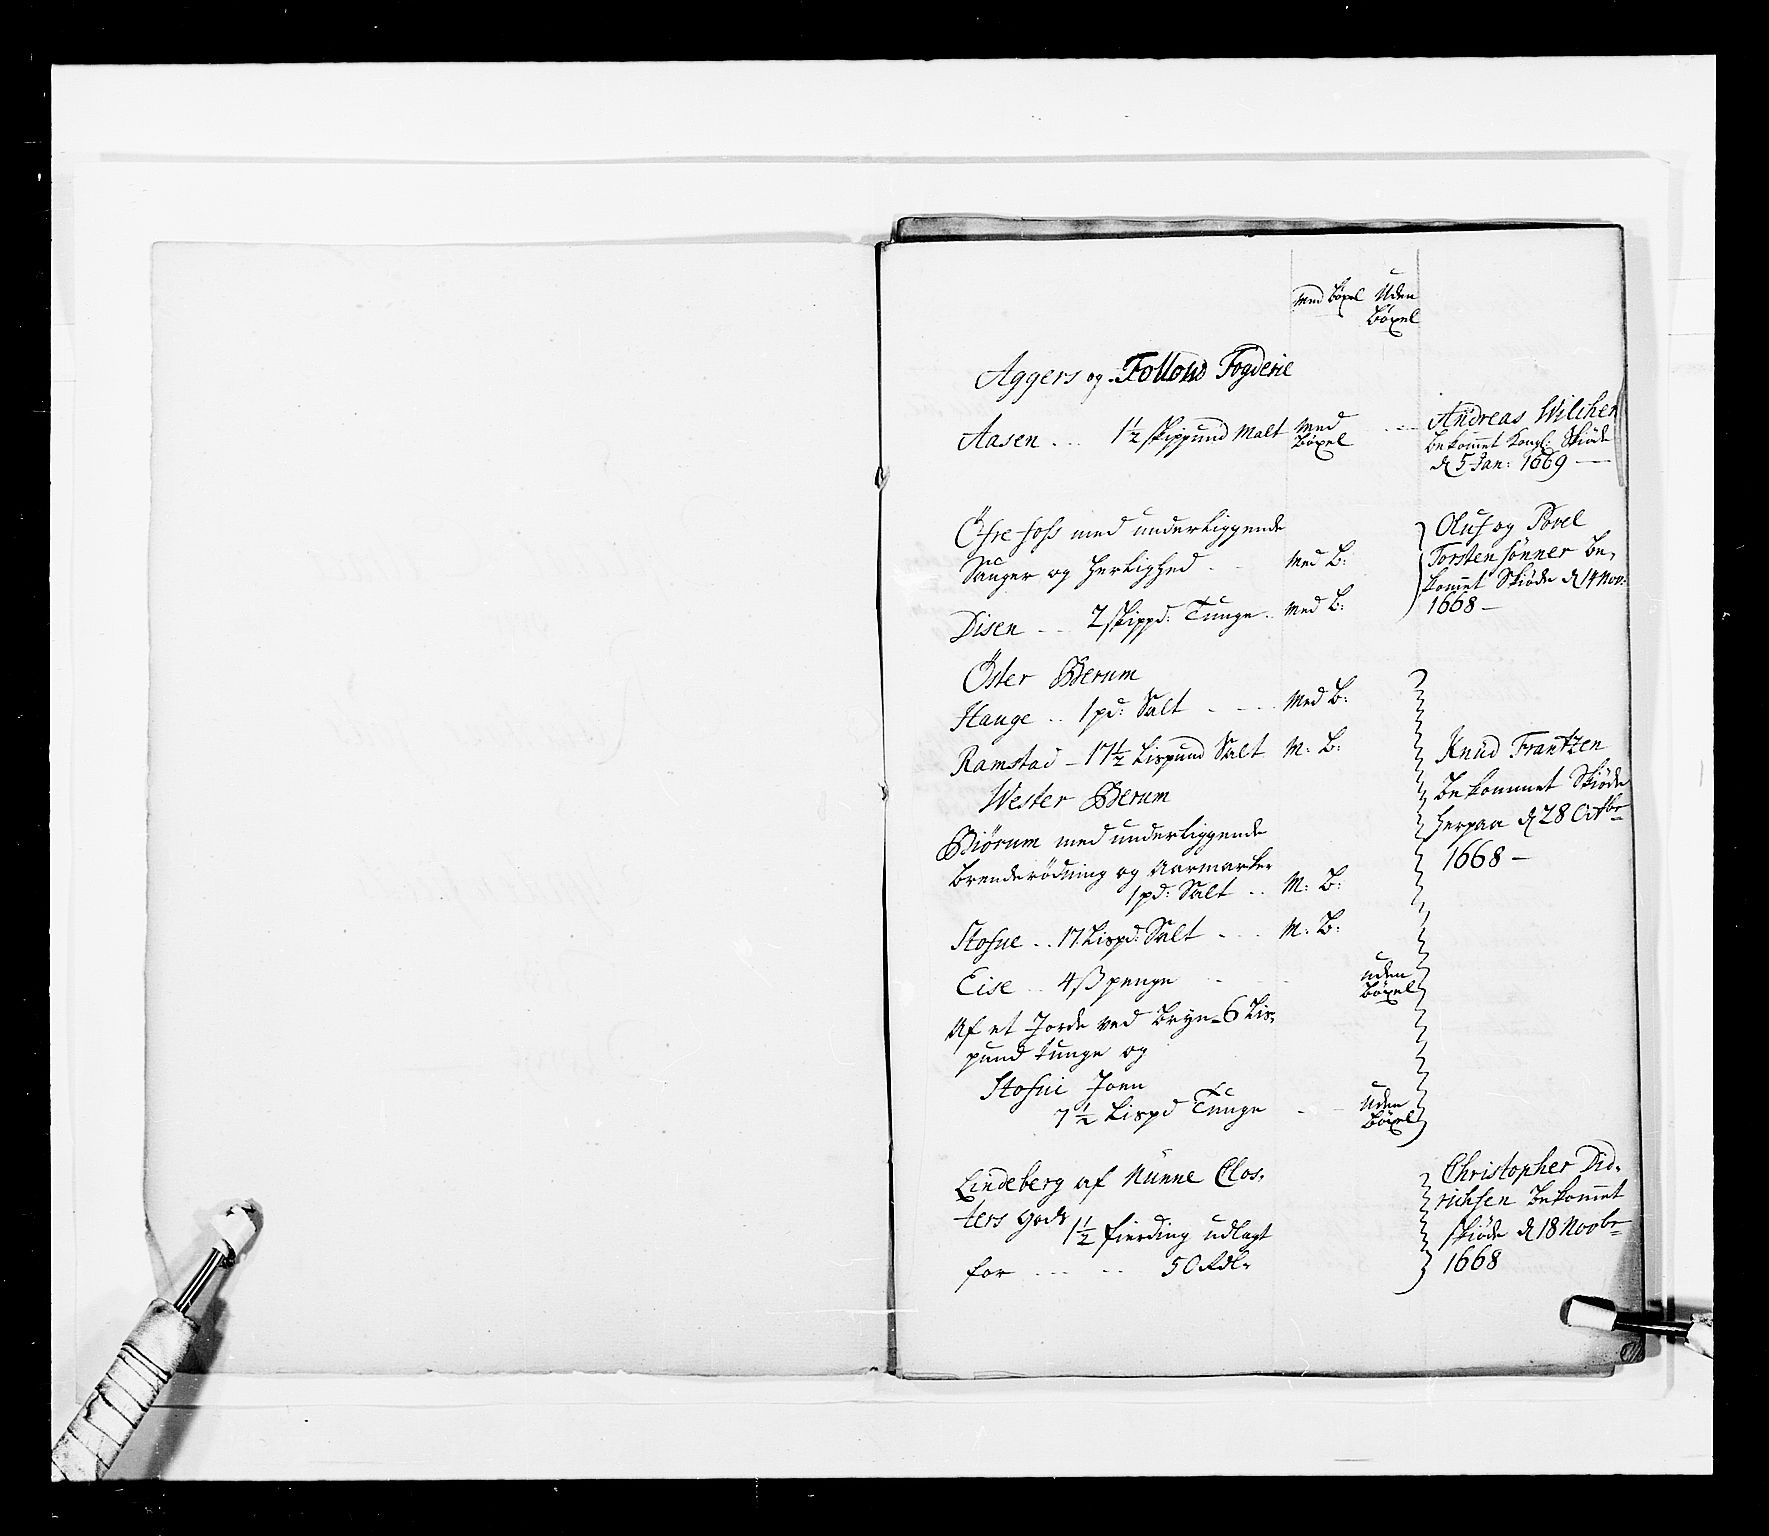 Med Böxel Uden
Böxel
Aggers og Follows Fogderie
Aasen ... 1½ skippund Malt Med
Böxel
Andreas Wilchen
bekom̃et Kongl: Skiöde
d 5 Jan: 1669 —
Öfre foss med underliggende
Sauger og herlighed . - Med B:
Disen - - 2 skippd: Tunge . Med B:
Oluf og Povel
Torstensönner be,
kom̃et Skiöde d 14 Nov:
1668 —
Öster Berum
Hauge .. 1 pd: Salt - - - Med B:
Ramstad — 17½ Lispund Salt M: B:
Wester Berum
Biörum med underliggende
brenderödning og Aarmarker
1 pd: Salt .. M: B:
Stofne .. 17 Lispd: Salt - . . M. B:
Eise .. 4 ß penge - - uden
böxel
Af et Jorde ved Bryn - 6 Lis,
pund tunge og
Stofni Joen
7½ Lispd Tunge - - Uden
Böxel
Knud Frantzen
bekommet Skiöde
herpaa d 28 Octbr
1668 —
Lindeberg af Nunne Clos,
ters Gods 1½ fierding udlagt
for ... .. 50 Rdlr
Christopher Did,
richsen bekom̃et
skiöde d 18 Novbr
1668